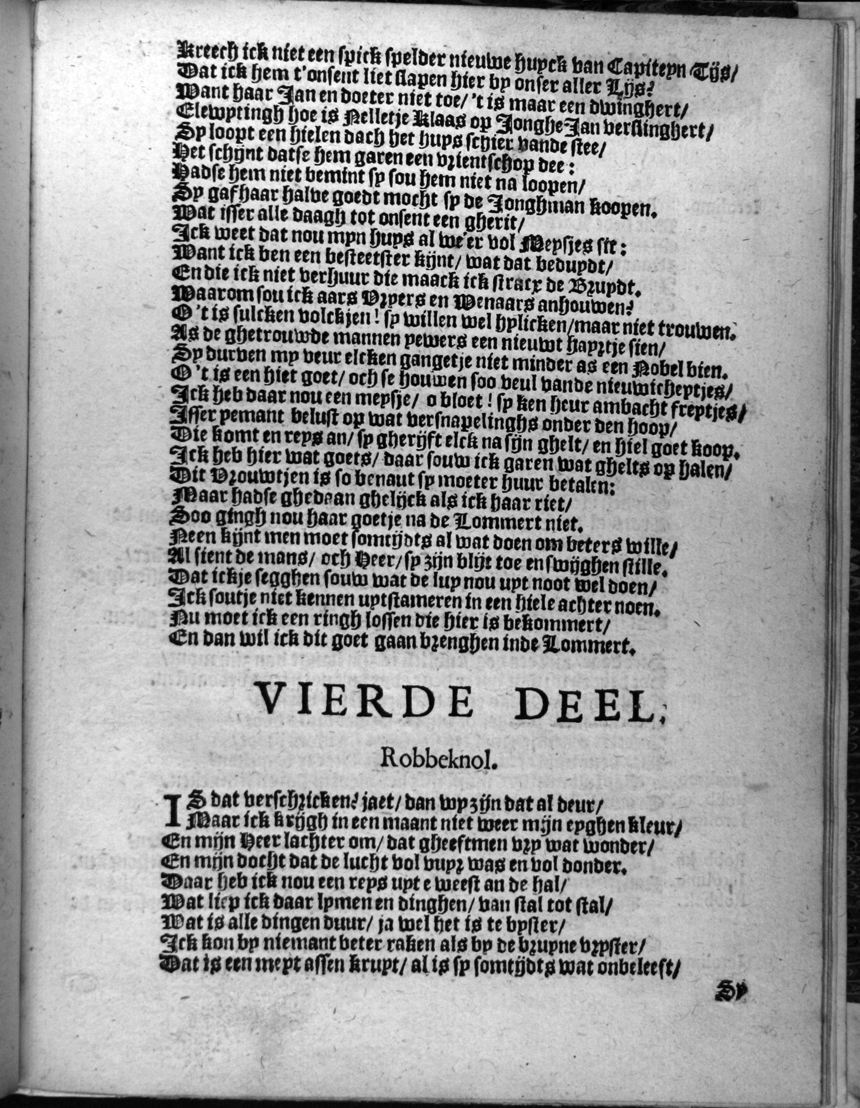 Kreech ick niet een spick spelder nieuwe huyck van Capiteyn Tijs/
Dat ick hem t'onsent liet slapen hier by onser aller Lijs?
Want haar Jan en doeter niet toe/ 't is maar een dwinghert/
Elewyttingh hoe is Nelletje Klaas op JongheJan verslinghert/
Sy loopt een hielen dach het huys schier vande stee/
Het schijnt datse hem garen een vrientschop dee:
Hadse hem niet bemint sy sou hem niet na loopen/
Sy gaf haar halve goedt mocht sy de Jonghman koopen.
Wat isser alle daagh tot onsent een gherit/
Ick weet dat nou myn huys al we'er vol Meysjes sit:
Want ick ben een besteetster kijnt/ wat dat beduydt/
En die ick niet verhuur die maack ick stracx de Bruydt.
Waarom sou ick aars Vryers en Wenaars anhouwen?
O 't is sulcken volckjen! sy willen wel hylicken/maar niet trouwen.
As de ghetrouwde mannen yewers een nieuwt hapztje sien/
Sy durven my veur elcken gangetje niet minder as een Nobel bien.
O 't is een hiet goet/ och se houwen soo veul vande nieuwicheytjes/
Ick heb daar nou een meysje/ o bloet! sy ken heur ambacht freytjes/
Isser yemant belust op wat versnapelinghs onder den hoop/
Die komt en reys an/ sy gherijft elck na sijn ghelt/ en hiel goet koop.
Ick heb hier wat goets/ daar souw ick garen wat ghelts op halen/
Dit Vrouwtjen is so benaut sy moeter huur betalen:
Maar hadse ghedaan ghelijck als ick haar riet/
Soo gingh nou haar goetje na de Lommert niet.
Neen kijnt men moet somtijdts al wat doen om beters wille/
Al sient de mans/ och Heer/ sy zijn blijt toe en swijghen stille.
Dat ickje segghen souw wat de luy nou uyt noot wel doen/
Ick soutje niet kennen uytstameren in een hiele achter noen.
Nu moet ick een ringh lossen die hier is bekommert/
En dan wil ick dit goet gaan brenghen inde Lommert.
VIERDE DEEL.
Robbeknol.
IS dat verschricken? jaet/ dan wy zijn dat al deur/
Maar ick krijgh in een maant niet weer mijn eyghen kleur/
En mijn Heer lachter om/ dat gheeftmen vry wat wonder/
En mijn docht dat de lucht vol vuyr was en vol donder.
Daar heb ick nou een reys uyt e weest an de hal/
Wat liep ick daar lymen en dinghen/ van stal tot stal/
Wat is alle dingen duur/ ja wel het is te byster/
Ick kon by niemant beter raken als by de bruyne vryster/
Dat is een meyt assen kruyt/ al is sy somtijdts wat onbeleeft/
Sy